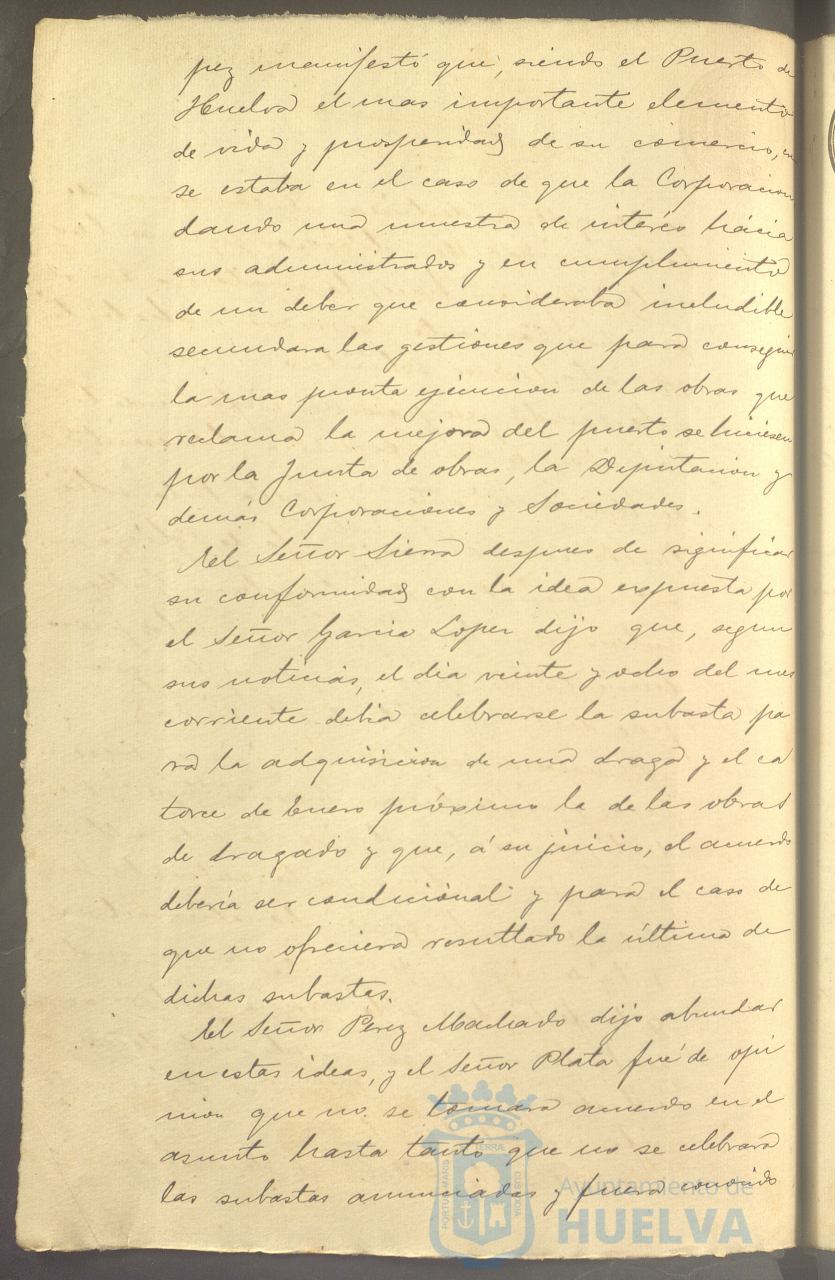 pez manifestó que, siendo el Puerto de
Huelva el mas importante elemento
de vida y prosperidad de su comercio,
se estaba en el caso de que la Corporacion
dando una muestra de interés hácia
sus administrados y en cumplimiento
de un deber que consideraba ineludible
secundara las gestiones que para conseguir
la mas pronta ejecucion de las obras que
reclama la mejora del puerto se hiciesen
por la Junta de obras, la Diputacion y
demás Corporaciones y Sociedades.
El Señor Sierra despues de significar
su conformidad con la idea expuesta por
el Señor Garcia Lopez dijo que, segun
sus noticias, el dia veinte y ocho del mes
corriente debia celebrarse la subasta pa
ra la adquisicion de una draga y el ca
torce de Enero próximo la de las obras
de dragado y que, á su juicio, el acuerdo
debería ser condicional y para el caso de
que no ofreciera resultado la última de
dichas subastas.
El Señor Pérez Machado dijo abundar
en estas ideas, y el Señor Plata fué de opi
nion que no se tomara acuerdo en el
asunto hasta tanto que no se celebrara
las subastas anunciadas y fuera conocido
Ayuntamiento de
HUELVA